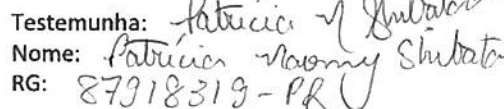 Testemunha: Patricia N Shibata
Nome: Patrícia Naomy Shibata
RG: 87918319-PR